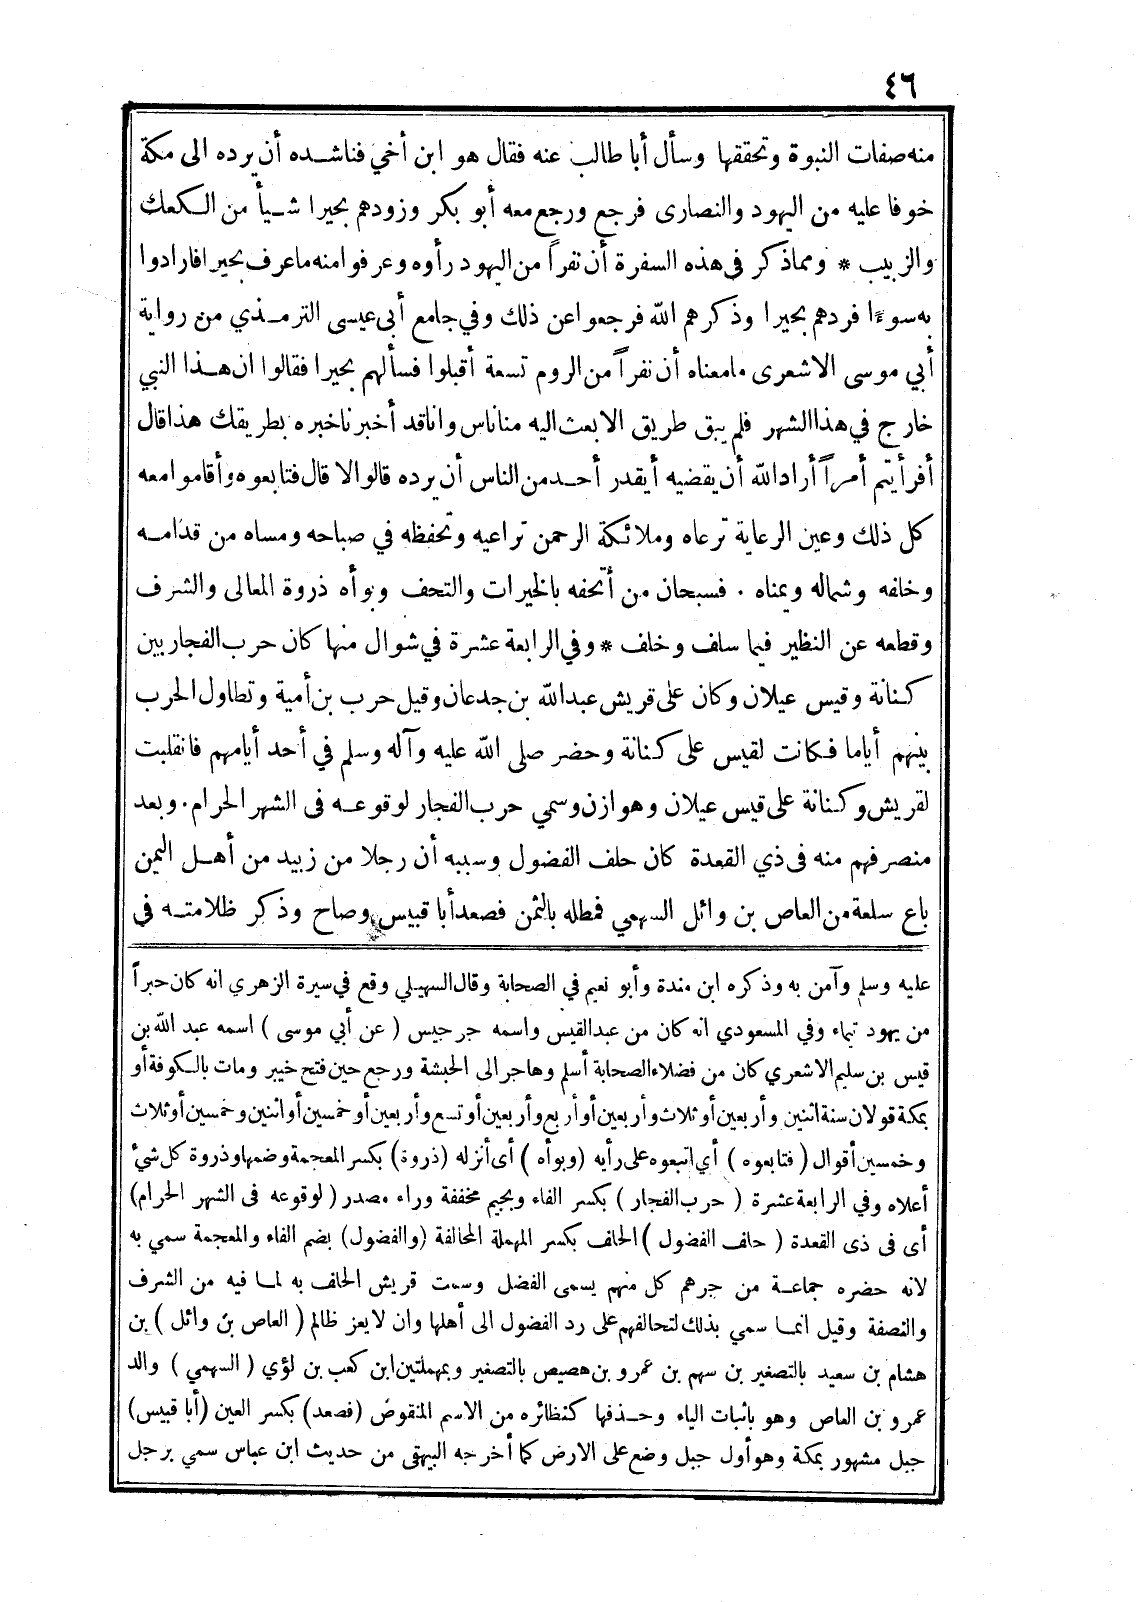 ٤٦
منه صفات النبوة وتحققها وسأل أبا طالب عنه فقال هو ابن أخي فناشده أن يرده الى مكة
خوفا عليه من اليهود والنصارى فرجع ورجع معه أبو بكر وزودهم بحيرا شيأ من الكعك
والزبيب * ومماذكر فى هذه السفرة أن نفراً من اليهود رأوه وعرفوا منه ماعرف بحيرا فارادوا
به سوءًا فردهم بحيرا وذكرهم الله فرجعوا عن ذلك وفي جامع أبى عيسى الترمذي من رواية
أبي موسى الاشعرى مامعناه أن نفراً من الروم تسعة أقبلوا فسألهم بحيرا فقالوا ان هذا النبي
خارج في هذا الشهر فلم يبق طريق الا بعث اليه منا ناس وانا قد أخبرنا خبره بطريقك هذا قال
أفرأيتم أمراً أراد الله أن يقضيه أيقدر أحد من الناس أن يرده قالوا لا قال فتابعوه وأقاموا معه
كل ذلك وعين الرعاية ترعاه وملائكة الرحمن تراعيه وتحفظه في صباحه ومساه من قدامه
وخلفه وشماله ويمناه . فسبحان من أتحفه بالخيرات والتحف وبوأه ذروة المعالى والشرف
وقطعه عن النظير فيما سلف وخلف * وفي الرابعة عشرة في شوال منها كان حرب الفجار بين
كنانة وقيس عيلان وكان على قريش عبدالله بن جدعان وقيل حرب بن أمية وتطاول الحرب
بينهم أياما فكانت لقيس على كنانة وحضر صلى الله عليه وآله وسلم في أحد أيامهم فانقلبت
لقريش وكنانة على قيس عيلان وهوازن وسمي حرب الفجار لوقوعه فى الشهر الحرام. وبعد
منصرفهم منه فى ذي القعدة كان حلف الفضول وسببه أن رجلا من زبيد من أهل اليمن
باع سلعة من العاص بن وائل السهمي فمطله بالثمن فصعد أبا قبيس وصاح وذكر ظلامته في
عليه وسلم وآمن به وذكره ابن مندة وأبو نعيم في الصحابة وقال السهيلي وقع في سيرة الزهري انه كان حبراً
من يهود تيماء وفي المسعودي انه كان من عبدالقيس واسمه جرجيس ( عن أبي موسى ) اسمه عبد الله بن
قيس بن سليم الاشعري كان من فضلاء الصحابة أسلم وهاجر الى الحبشة ورجع حين فتح خيبر ومات بالكوفة أو
بمكة قولان سنة اثنين وأربعين أو ثلاث وأربعين أو أربع وأربعين أو تسع وأربعين أو خمسين أو اثنين وخمسين أو ثلاث
وخمسين أقوال ( فتابعوه ) أي اتبعوه على رأيه (وبوأه ) أى أنزله (ذروة) بكسر المعجمة وضمها وذروة كل شئ
أعلاه وفي الرابعة عشرة ( حرب الفجار ) بكسر الفاء وبجيم مخففة وراء مصدر (لوقوعه فى الشهر الحرام)
أى فى ذى القعدة ( حلف الفضول ) الحلف بكسر المهملة المحالفة (والفضول) بضم الفاء والمعجمة سمي به
لانه حضره جماعة من جرهم كل منهم يسمى الفضل وسمت قريش الحلف به لما فيه من الشرف
والنصفة وقيل انما سمي بذلك لتحالفهم على رد الفضول الى أهلها وان لا يعز ظالم ( العاص بن وائل ) بن
هشام بن سعيد بالتصغير بن سهم بن عمرو بن هصيص بالتصغير وبمهملتين ابن كعب بن لؤي ( السهمي ) والد
عمرو بن العاص وهو باثبات الياء وحذفها كنظائره من الاسم المنقوض (فصعد) بكسر العين (أبا قبيس)
جبل مشهور بمكة وهو أول جبل وضع على الارض كما أخرجه البيهقى من حديث ابن عباس سمي برجل